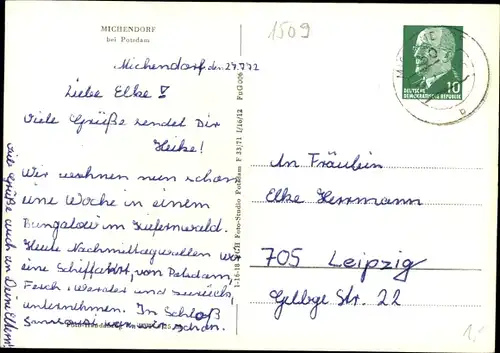 MICHENDORF
bei Potsdam
1509
Michendorf, den 27.7.72
Liebe Elke
Viele Grüße sendet Dir
Heike!
Wir wohnen nun schon
eine Woche in einem
Bungalow im Kiefernwald.
Heute Nachmittag wollen wir
eine Schiffahrt, von Potsdam,
Ferch, Werder und zurück,
unternehmen. In Schloß
Sanssouci waren wir schon.
viele Grüße auch an Deine Eltern!
Foto-Studio Potsdam F 33/71 1/16/12 FuG 006
DEUTSCHE
DEMOKRATISCHE REPUBLIK
10
An Fräulein
Elke Herrmann
705 Leipzig
Gelbge Str. 22
1,-